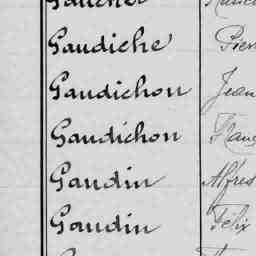 Gaudiche Pier
Gaudichon Jean
Gaudichon Franç
Gaudin Alfred
Gaudin Félix